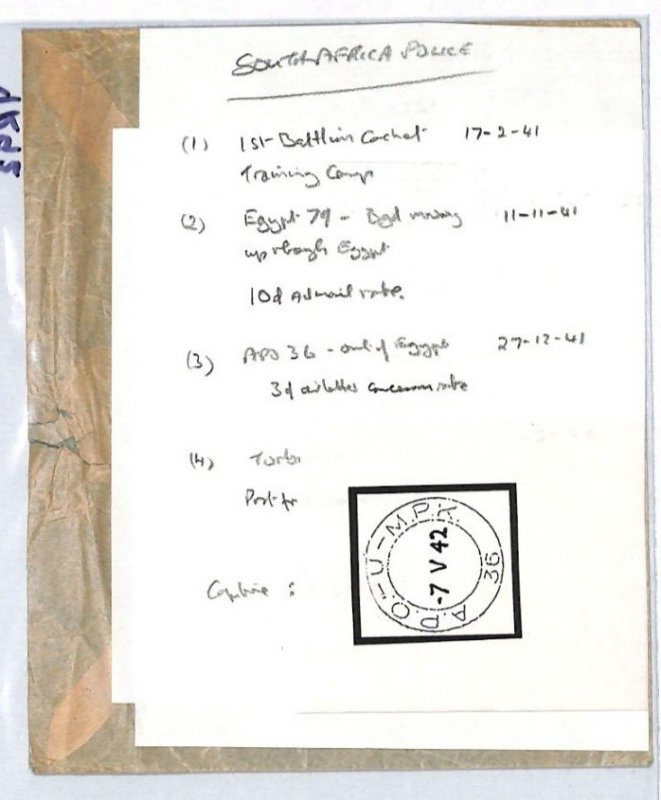 SOUTH AFRICA POLICE
(1) 1st Battlion Cachet 17-2-41
Training Camp
(2) Egypt 79 - Bgd moving 11-11-41
up through Egypt
10d Airmail rate.
(3) APO 36 - out of Egypt 27-12-41
3d airletter concession rate
(4)
Post
Capture :
A.P.O.-U-M.P.K. 36
-7 V 42